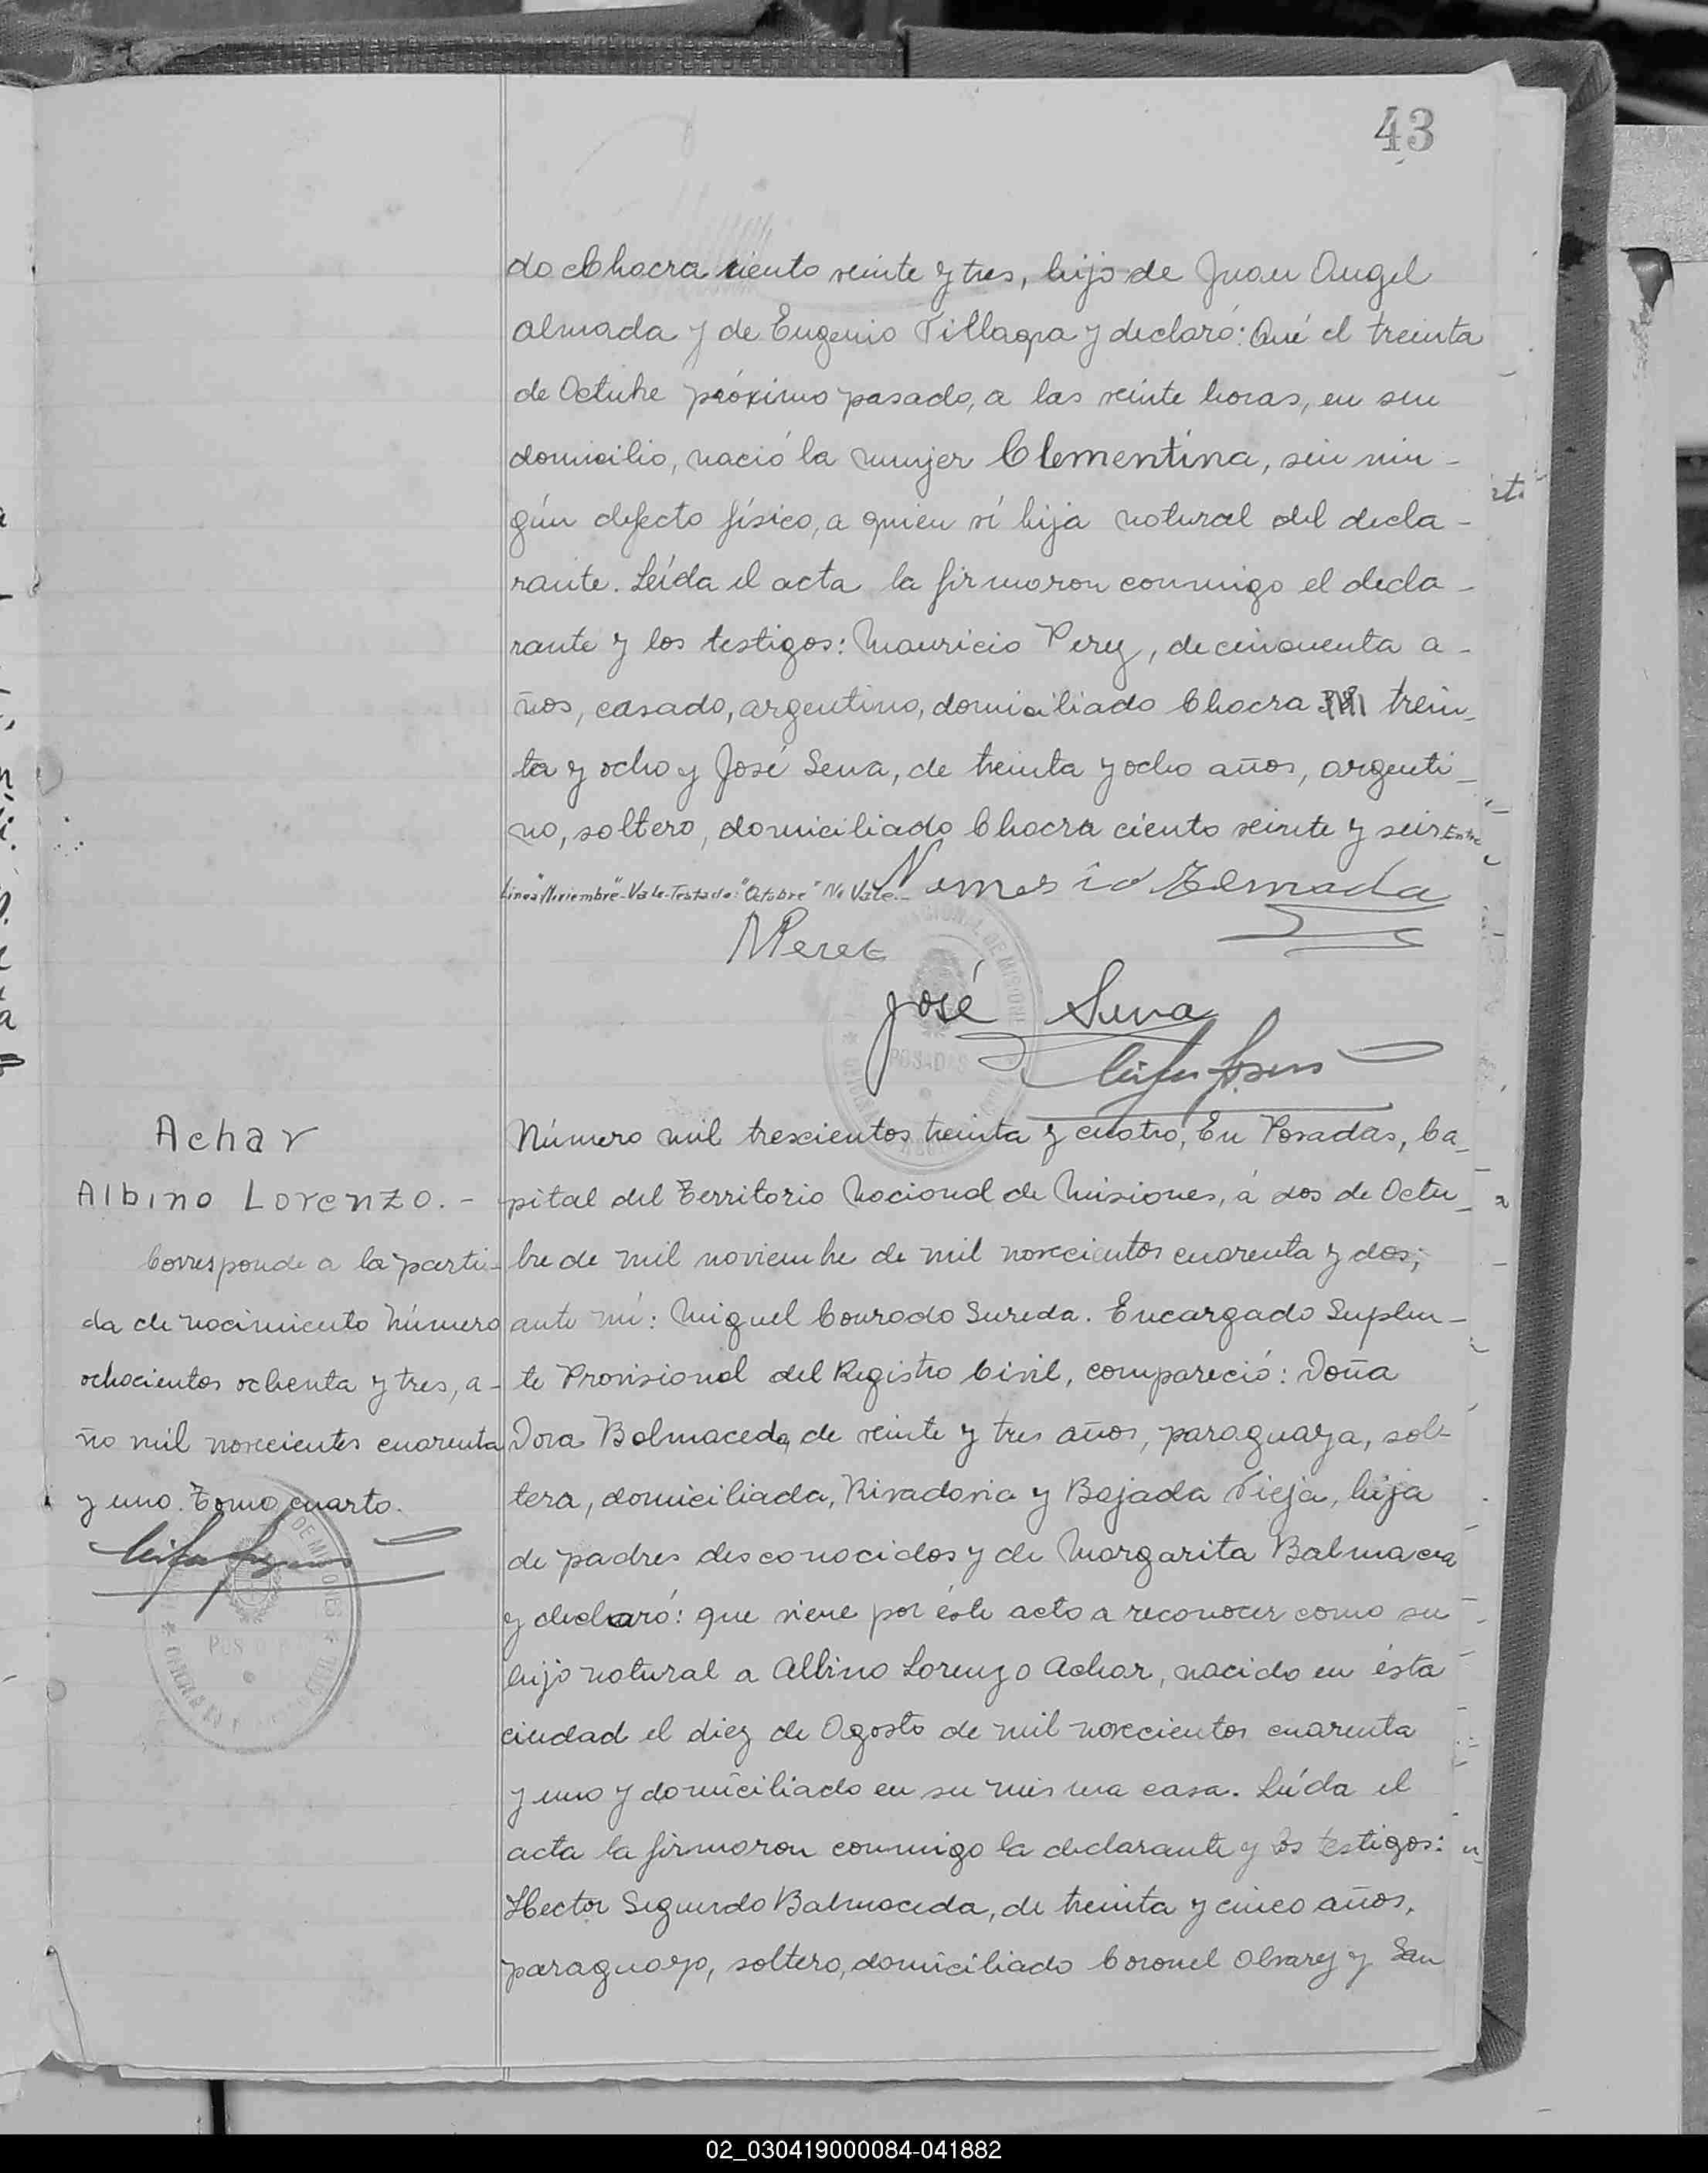 43
do Chacra ciento veinte y tres, hijo de Juan Angel
Almada y de Eugenia Villagra y declaró: Qué el treinta
de Octubre próximo pasado, a las veinte horas, en su
domicilio, nació la mujer Clementina, sin nin-
gún defecto físico, a quien ví hija natural del decla-
rante. Leída el acta la firmaron conmigo el decla-
rante y los testigos: Mauricio Perez, de cincuenta a-
ños, casado, argentino, domiciliado Chacra trein-
ta y ocho y José Sena, de treinta y ocho años, argenti-
no, soltero, domiciliado Chacra ciento veinte y seis Entre
Linea "Noviembre"-Vale-Testado: "Octubre" No Vale.-
Nemesio Almada
MPerez
José Sena
Achar
Albino Lorenzo.-
Corresponde a la parti-
da de nacimiento número
ochocientos ochenta y tres, a-
ño mil novecientos cuarenta
y uno. Tomo cuarto.
Número mil trescientos treinta y cuatro, En Posadas, Ca-
pital del Territorio Nacional de Misiones, á dos de Octu-
bre de mil noviembre de mil novecientos cuarenta y dos;
ante mí: Miguel Conrado Sureda. Encargado Suplen-
te Provisional del Registro Civil, compareció: Doña
Dora Balmaceda, de veinte y tres años, paraguaya, sol-
tera, domiciliada, Rivadavia y Bajada Vieja, hija
de padres desconocidos y de Margarita Balmacea
y declaró: que viene por éste acto a reconocer como su
hijo natural a Albino Lorenzo Achar, nacido en ésta
ciudad el diez de Agosto de mil novecientos cuarenta
y uno y domiciliado en su misma casa. Leída el
acta la firmaron conmigo la declarante y los testigos:
Hector Segundo Balmaceda, de treinta y cinco años,
paraguayo, soltero, domiciliado Coronel Alvarez y San
02_030419000084-041882